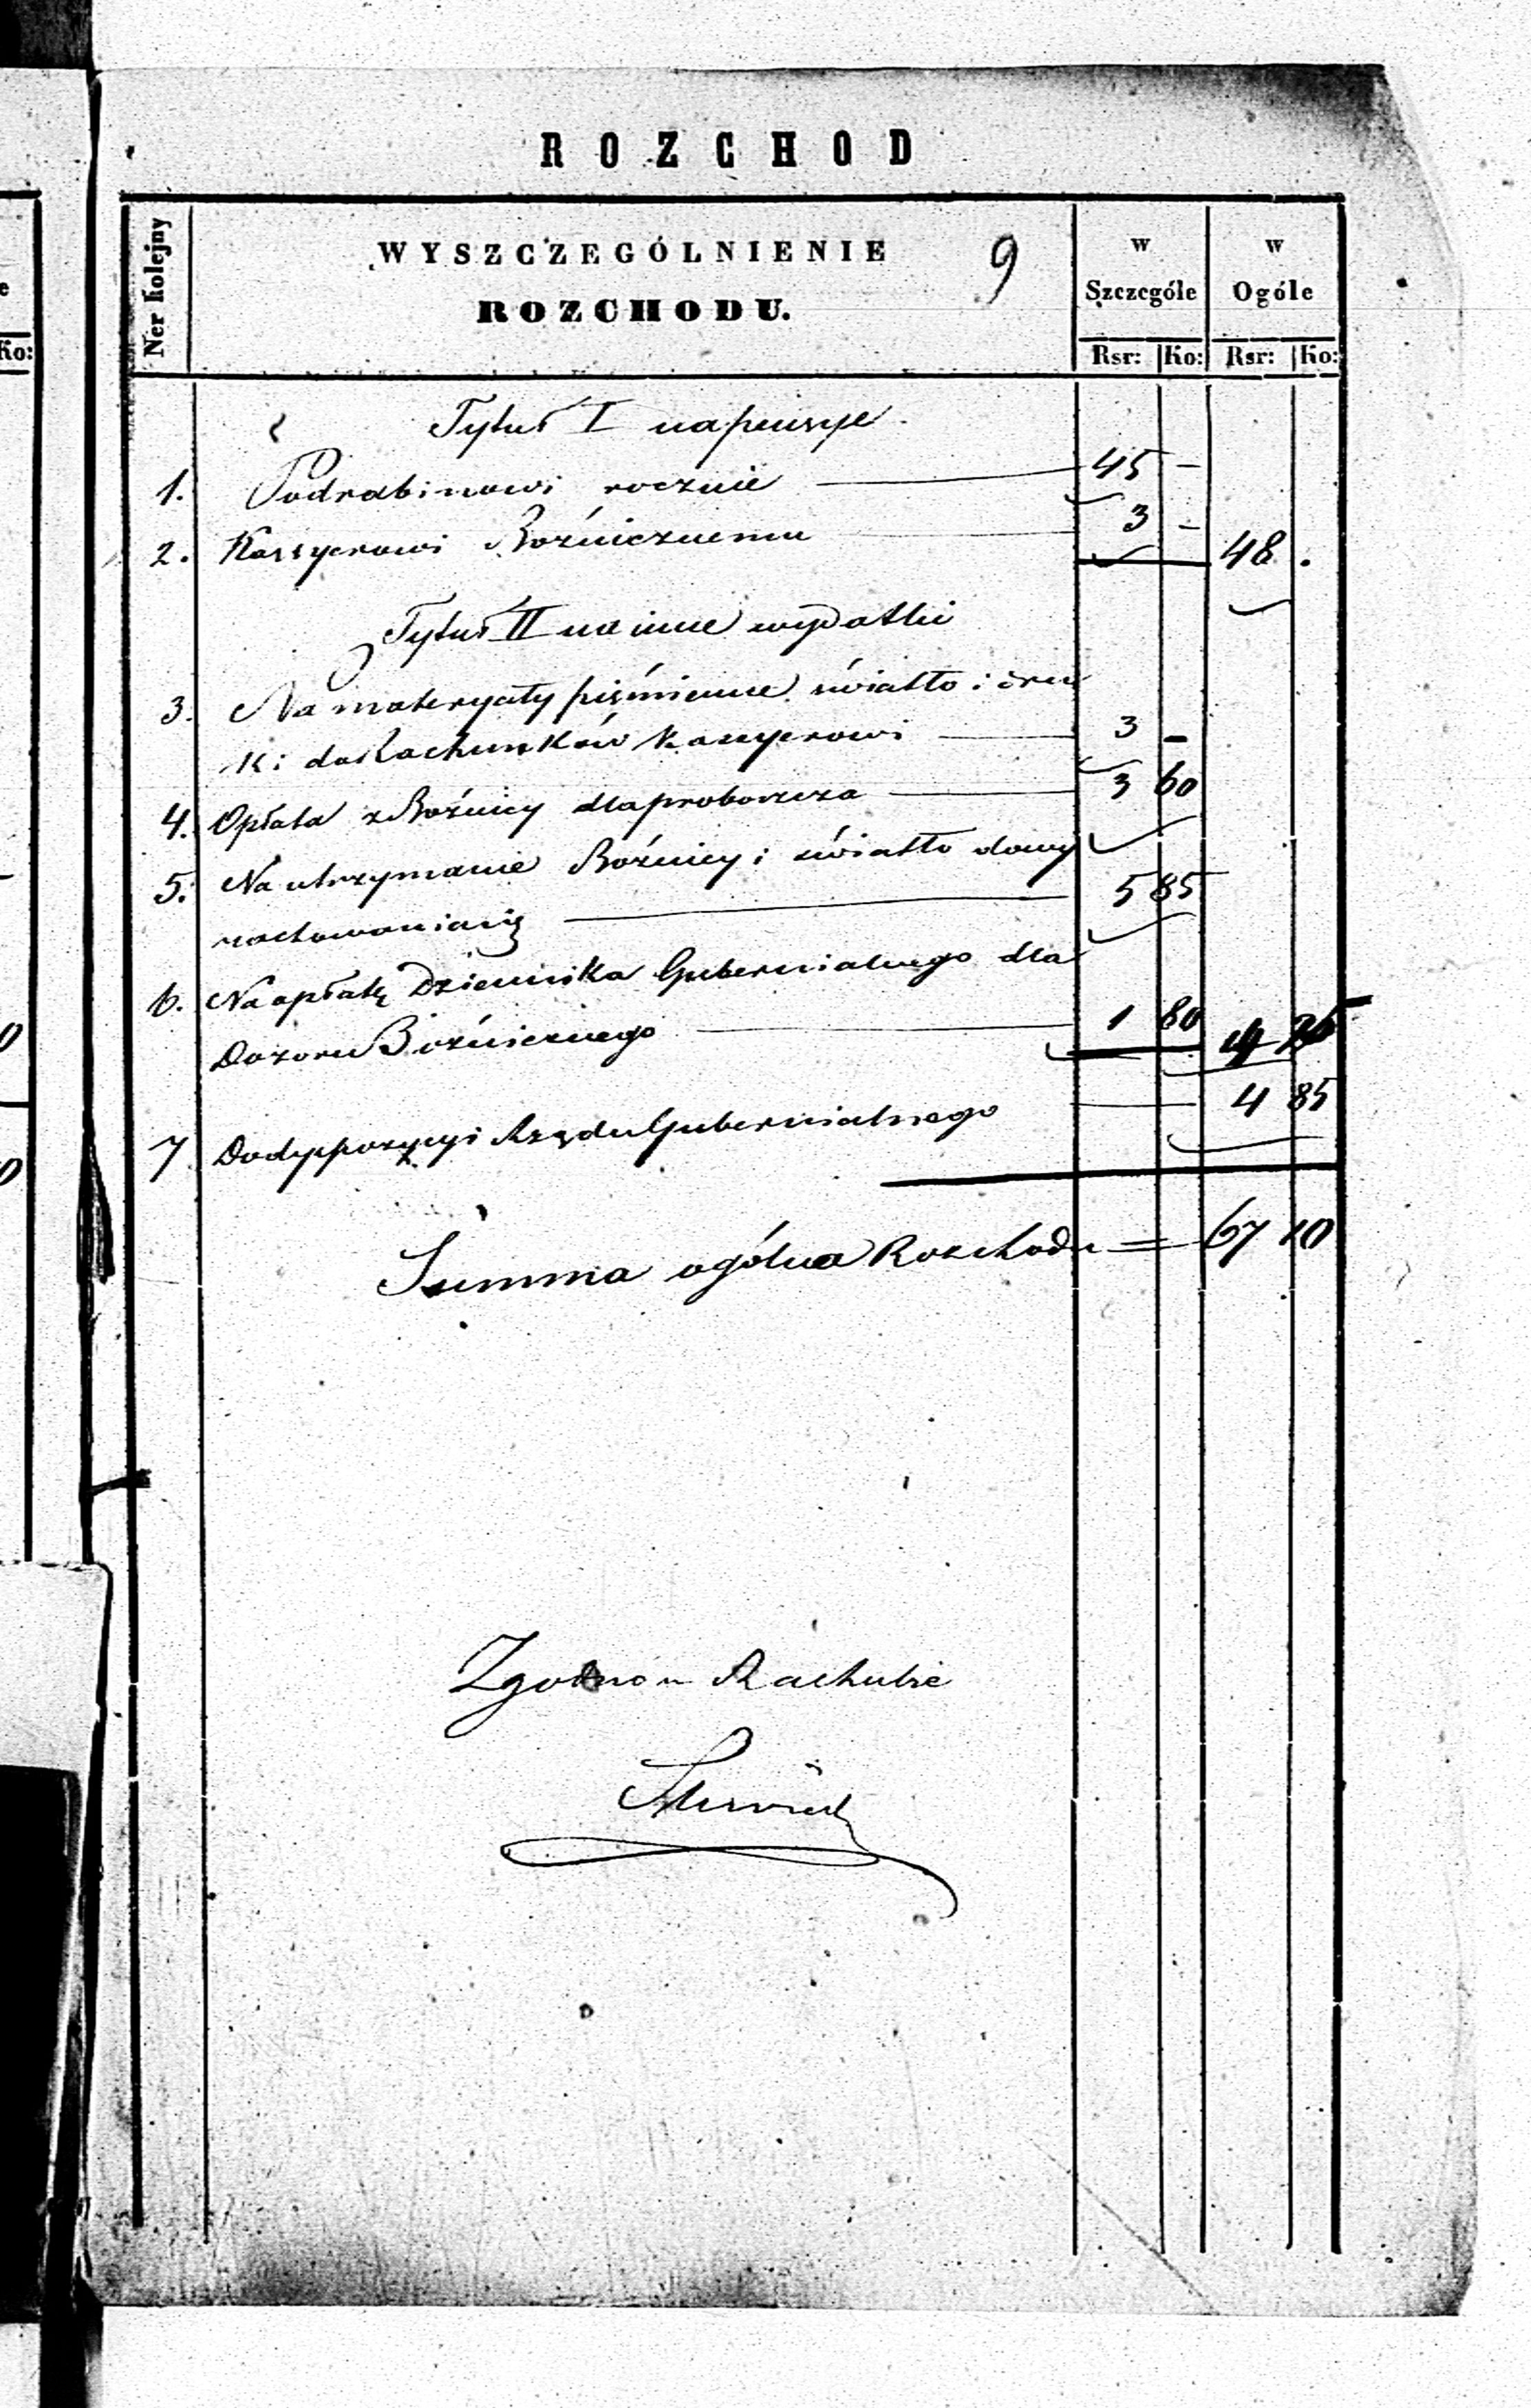 ROZCHOD
Ner kolejny
WYSZCZEGÓLNIENIE
ROZCHODU.
9
w Szczególe
w Ogóle
Rsr: Ko: Rsr: Ko:
Tytuł I na pensye
1. Podrabinowi rocznie 45 –
2. Kassyerowi Bożnicznemu 3 – 48 .
Tytuł II na inne wydatki
3. Na materyały piśmienne światło i dru
ki do Rachunków kassyerowi 3 –
4. Opłata z Bożnicy dla proboszcza 3 60
5. Na utrzymanie Bożnicy i światło do wy
rachowania się 5 85
6. Na opłatę Dziennika Gubernialnego dla
Dozoru Bożnicznego 1 80 25
7 Do dyspozycyi Rządu Gubernialnego 4 85
Summa ogólna Rozchodu = 67 10
Zgodno w Rachubie
Ko: